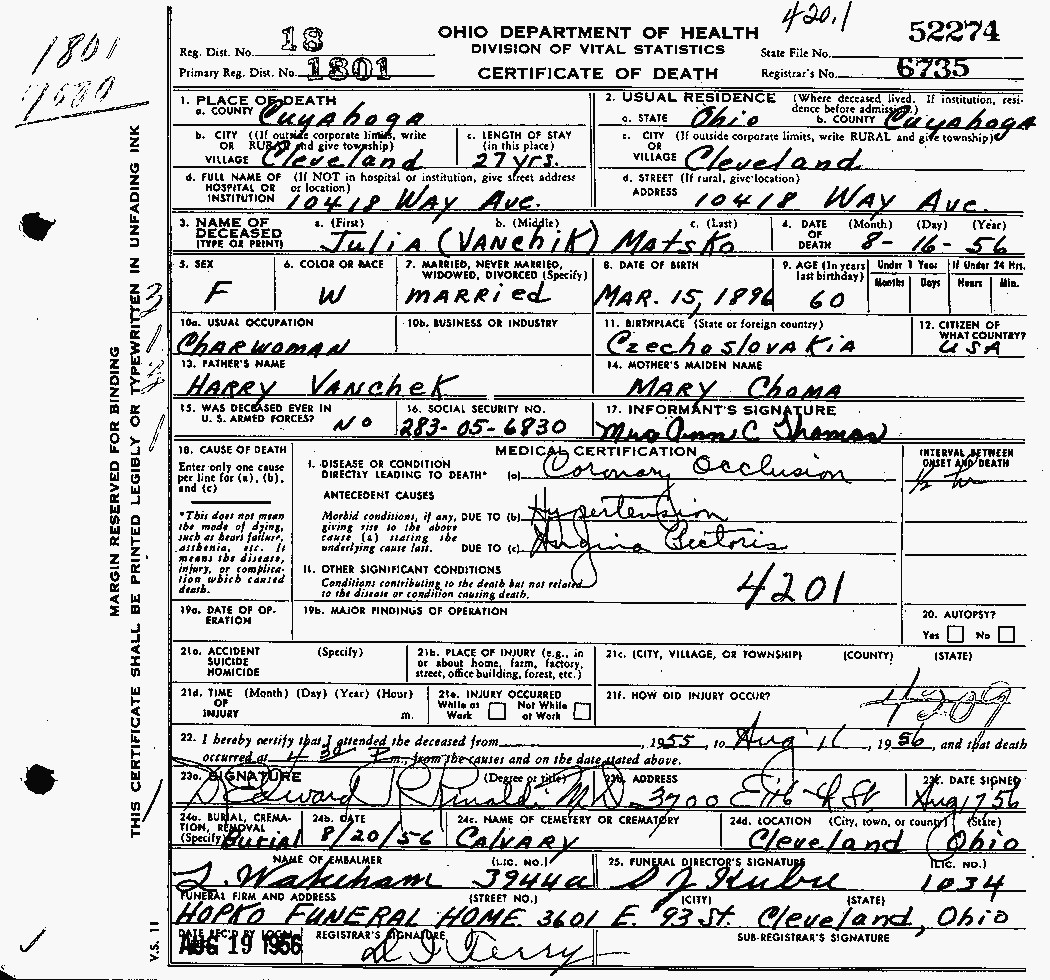 420.1
52274
1801
4680
OHIO DEPARTMENT OF HEALTH
DIVISION OF VITAL STATISTICS
CERTIFICATE OF DEATH
Reg. Dist. No. 18
Primary Reg. Dist. No. 1801
State File No.
Registrar's No. 6735
MARGIN RESERVED FOR BINDING
THIS CERTIFICATE SHALL BE PRINTED LEGIBLY OR TYPEWRITTEN IN UNFADING INK
1. PLACE OF DEATH
a. COUNTY Cuyahoga
2. USUAL RESIDENCE (Where deceased lived. If institution, residence before admission.)
a. STATE Ohio b. COUNTY Cuyahoga
b. CITY (If outside corporate limits, write
OR RURAL and give township)
VILLAGE Cleveland
c. LENGTH OF STAY
(in this place)
27 yrs.
c. CITY (If outside corporate limits, write RURAL and give township)
OR
VILLAGE Cleveland
d. FULL NAME OF (If NOT in hospital or institution, give street address
HOSPITAL OR or location)
INSTITUTION 10418 WAY Ave.
d. STREET (If rural, give location)
ADDRESS 10418 WAY Ave.
3. NAME OF DECEASED
(TYPE OR PRINT)
a. (First) b. (Middle) c. (Last)
Julia (VANchik) MATSKo
4. DATE OF DEATH
(Month) (Day) (Year)
8-16-56
5. SEX
F
6. COLOR OR RACE
W
7. MARRIED, NEVER MARRIED,
WIDOWED, DIVORCED (Specify)
MARRied
8. DATE OF BIRTH
MAR. 15, 1896
9. AGE (In years
last birthday)
60
Under 1 Year
Months Days
If Under 24 Hrs.
Hours Min.
10a. USUAL OCCUPATION
CHARWOMAN
10b. BUSINESS OR INDUSTRY
11. BIRTHPLACE (State or foreign country)
CzechoslovaKIA
12. CITIZEN OF
WHAT COUNTRY?
USA
13. FATHER'S NAME
HARRY VANCheK
14. MOTHER'S MAIDEN NAME
MARY ChomA
15. WAS DECEASED EVER IN
U. S. ARMED FORCES? No
16. SOCIAL SECURITY NO.
283-05-6830
17. INFORMANT'S SIGNATURE
Mrs Ann C Thomas
18. CAUSE OF DEATH
Enter only one cause
per line for (a), (b),
and (c)
*This does not mean
the mode of dying,
such as heart failure,
asthenia, etc. It
means the disease,
injury, or complica-
tion which caused
death.
MEDICAL CERTIFICATION
I. DISEASE OR CONDITION
DIRECTLY LEADING TO DEATH* (a) Coronary Occlusion
ANTECEDENT CAUSES
Morbid conditions, if any,
giving rise to the above
cause (a) stating the
underlying cause last.
DUE TO (b) Hypertension
DUE TO (c) Angina Pectoris
INTERVAL BETWEEN
ONSET AND DEATH
1/2 hr
II. OTHER SIGNIFICANT CONDITIONS
Conditions contributing to the death but not related
to the disease or condition causing death.
4201
19a. DATE OF OP-
ERATION
19b. MAJOR FINDINGS OF OPERATION
20. AUTOPSY?
Yes No
21a. ACCIDENT (Specify)
SUICIDE
HOMICIDE
21b. PLACE OF INJURY (e.g., in
or about home, farm, factory,
street, office building, forest, etc.)
21c. (CITY, VILLAGE, OR TOWNSHIP) (COUNTY) (STATE)
21d. TIME (Month) (Day) (Year) (Hour)
OF
INJURY m.
21e. INJURY OCCURRED
While at Work Not While at Work
21f. HOW DID INJURY OCCUR?
4209
22. I hereby certify that I attended the deceased from 1955, to Aug 16, 1956, and that death
occurred at 4 30 P m., from the causes and on the date stated above.
23a. SIGNATURE (Degree or title)
Edward R Rinaldi M.D.
23b. ADDRESS
3700 E 116th St
23c. DATE SIGNED
Aug 17 56
24a. BURIAL, CREMA-
TION, REMOVAL
(Specify) Burial
24b. DATE
8/20/56
24c. NAME OF CEMETERY OR CREMATORY
CALVARY
24d. LOCATION (City, town, or county) (State)
Cleveland Ohio
NAME OF EMBALMER (LIC. NO.)
L. Wakeham 3944a
25. FUNERAL DIRECTOR'S SIGNATURE (LIC. NO.)
S J Kubu 1034
FUNERAL FIRM AND ADDRESS (STREET NO.) (CITY) (STATE)
HOPKO FUNERAL HOME 3601 E. 93 St. Cleveland, Ohio
DATE REC'D BY LOCAL
AUG 19 1956
REGISTRAR'S SIGNATURE
SUB-REGISTRAR'S SIGNATURE
V.S. 11